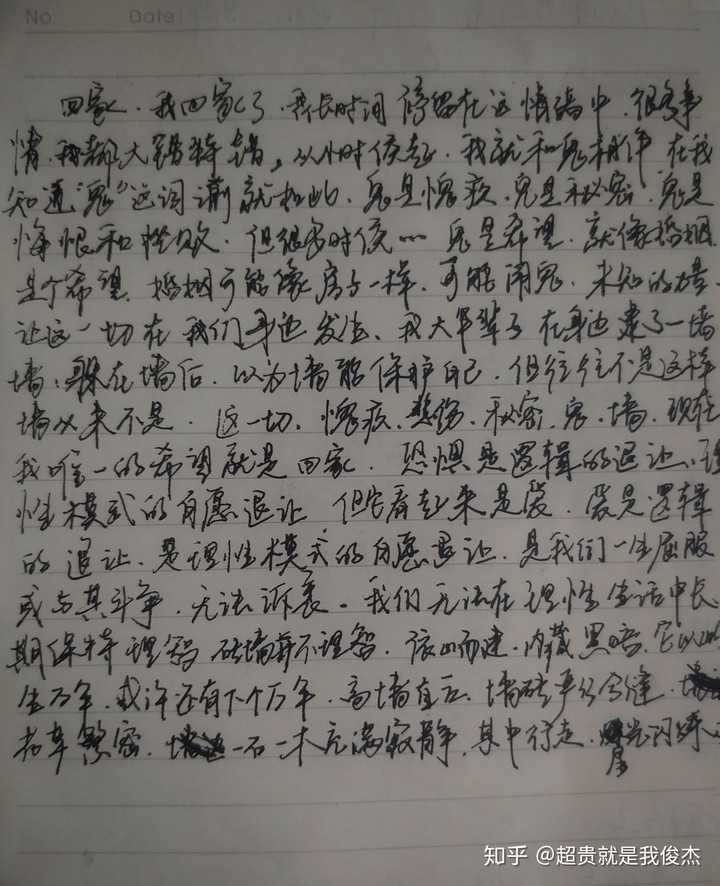 No. Date
回家、我回家了、我长时间停留在这情绪中、很多事
情、我都大错特错，从小时候起、我就和鬼相伴 在我
知道"鬼"这词前就如此、鬼是愧疚、鬼是秘密、鬼是
悔恨和挫败、但很多时候…… 鬼是希望、就像婚姻
是个希望、婚姻可能像房子一样、可能闹鬼、未知的
让这一切在我们身边发生、我大半辈子在身边建了一墙
墙、躲在墙后、以为墙能保护自己、但往往不是这样
墙从来不是、这一切、愧疚、悲伤、秘密、鬼、墙、现在
我唯一的希望就是回家、恐惧是逻辑的退让、理
性模式的自愿退让、但它看起来是爱、爱是逻辑
的退让、是理性模式的自愿退让、是我们一生屈服
或与其斗争、无法诉衷。我们无法在理性生活中长
期保持理智 砖墙并不理智、依山而建、内藏黑暗、它以此
生万年、或许还有下个万年、高墙直立、墙砖严丝合缝、
紧密、一石一木充满寂静、其中行走、
知乎 @超贵就是我俊杰